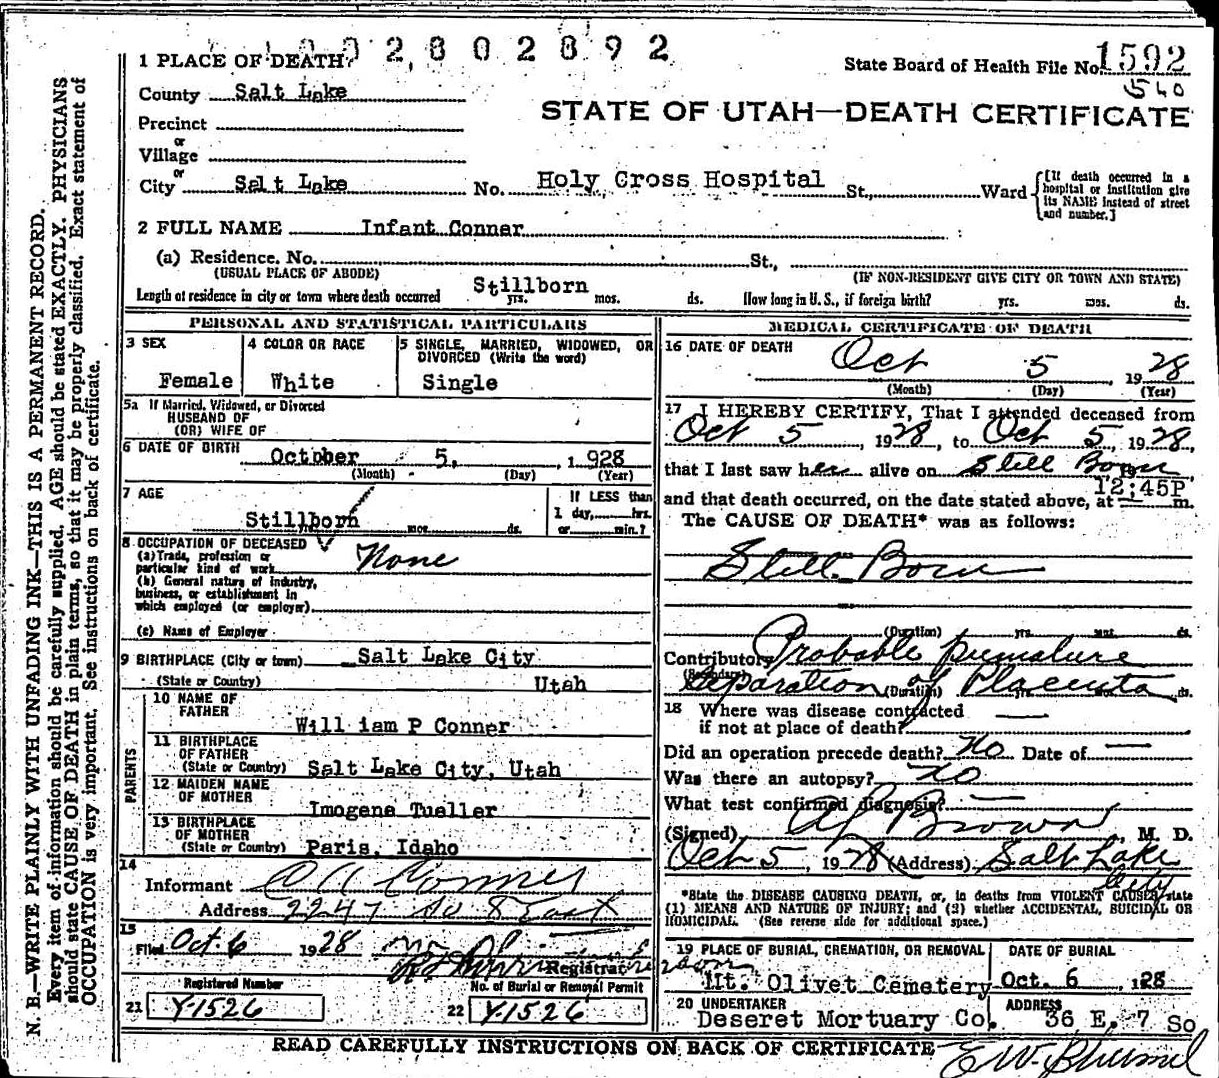 002802892
1 PLACE OF DEATH
State Board of Health File No. 1592
540
County Salt Lake
STATE OF UTAH—DEATH CERTIFICATE
Precinct
or
Village
or
City Salt Lake No. Holy Cross Hospital St., Ward
[If death occurred in a hospital or institution give its NAME instead of street and number.]
2 FULL NAME Infant Conner
(a) Residence. No. St.,
(USUAL PLACE OF ABODE) (IF NON-RESIDENT GIVE CITY OR TOWN AND STATE)
Stillborn
Length of residence in city or town where death occurred yrs. mos. ds. How long in U.S., if foreign birth? yrs. mos. ds.
PERSONAL AND STATISTICAL PARTICULARS
3 SEX 4 COLOR OR RACE 5 SINGLE, MARRIED, WIDOWED, OR
DIVORCED (Write the word)
Female White Single
5a If Married, Widowed, or Divorced
HUSBAND OF
(OR) WIFE OF
6 DATE OF BIRTH October 5, 1928
(Month) (Day) (Year)
7 AGE If LESS than
1 day, hrs.
Stillborn mos. ds. or min.?
8 OCCUPATION OF DECEASED
(a) Trade, profession or
particular kind of work None
(b) General nature of industry,
business, or establishment in
which employed (or employer)
(c) Name of Employer
9 BIRTHPLACE (City or town) Salt Lake City
(State or Country) Utah
PARENTS
10 NAME OF
FATHER
William P Conner
11 BIRTHPLACE
OF FATHER
(State or Country) Salt Lake City, Utah
12 MAIDEN NAME
OF MOTHER
Imogene Tueller
13 BIRTHPLACE
OF MOTHER
(State or Country) Paris, Idaho
14
Informant Conner
Address 2247 So 8 East
15
Filed Oct. 6 1928
Registrar
Registered Number No. of Burial or Removal Permit
21 Y-1526 22 Y-1526
MEDICAL CERTIFICATE OF DEATH
16 DATE OF DEATH Oct 5, 1928
(Month) (Day) (Year)
17 I HEREBY CERTIFY, That I attended deceased from
Oct 5, 1928, to Oct 5, 1928,
that I last saw her alive on Still Born
12:45P
and that death occurred, on the date stated above, at m.
The CAUSE OF DEATH* was as follows:
Still Born
(Duration) yrs. mos. ds.
Contributory Probable premature
(Secondary) Separation of Placenta
(Duration) yrs. ds.
18 Where was disease contracted
if not at place of death?
Did an operation precede death? No Date of —
Was there an autopsy? No
What test confirmed diagnosis? —
(Signed) Brown, M. D.
Oct 5, 1928 (Address) Salt Lake
City
*State the DISEASE CAUSING DEATH, or, in deaths from VIOLENT CAUSES, state
(1) MEANS AND NATURE OF INJURY; and (2) whether ACCIDENTAL, SUICIDAL OR
HOMICIDAL. (See reverse side for additional space.)
19 PLACE OF BURIAL, CREMATION, OR REMOVAL DATE OF BURIAL
Mt. Olivet Cemetery Oct. 6, 1928
20 UNDERTAKER ADDRESS
Deseret Mortuary Co. 36 E. 7 So
READ CAREFULLY INSTRUCTIONS ON BACK OF CERTIFICATE
N. B.—WRITE PLAINLY WITH UNFADING INK—THIS IS A PERMANENT RECORD.
Every item of information should be carefully supplied. AGE should be stated EXACTLY. PHYSICIANS
should state CAUSE OF DEATH in plain terms, so that it may be properly classified. Exact statement of
OCCUPATION is very important. See instructions on back of certificate.